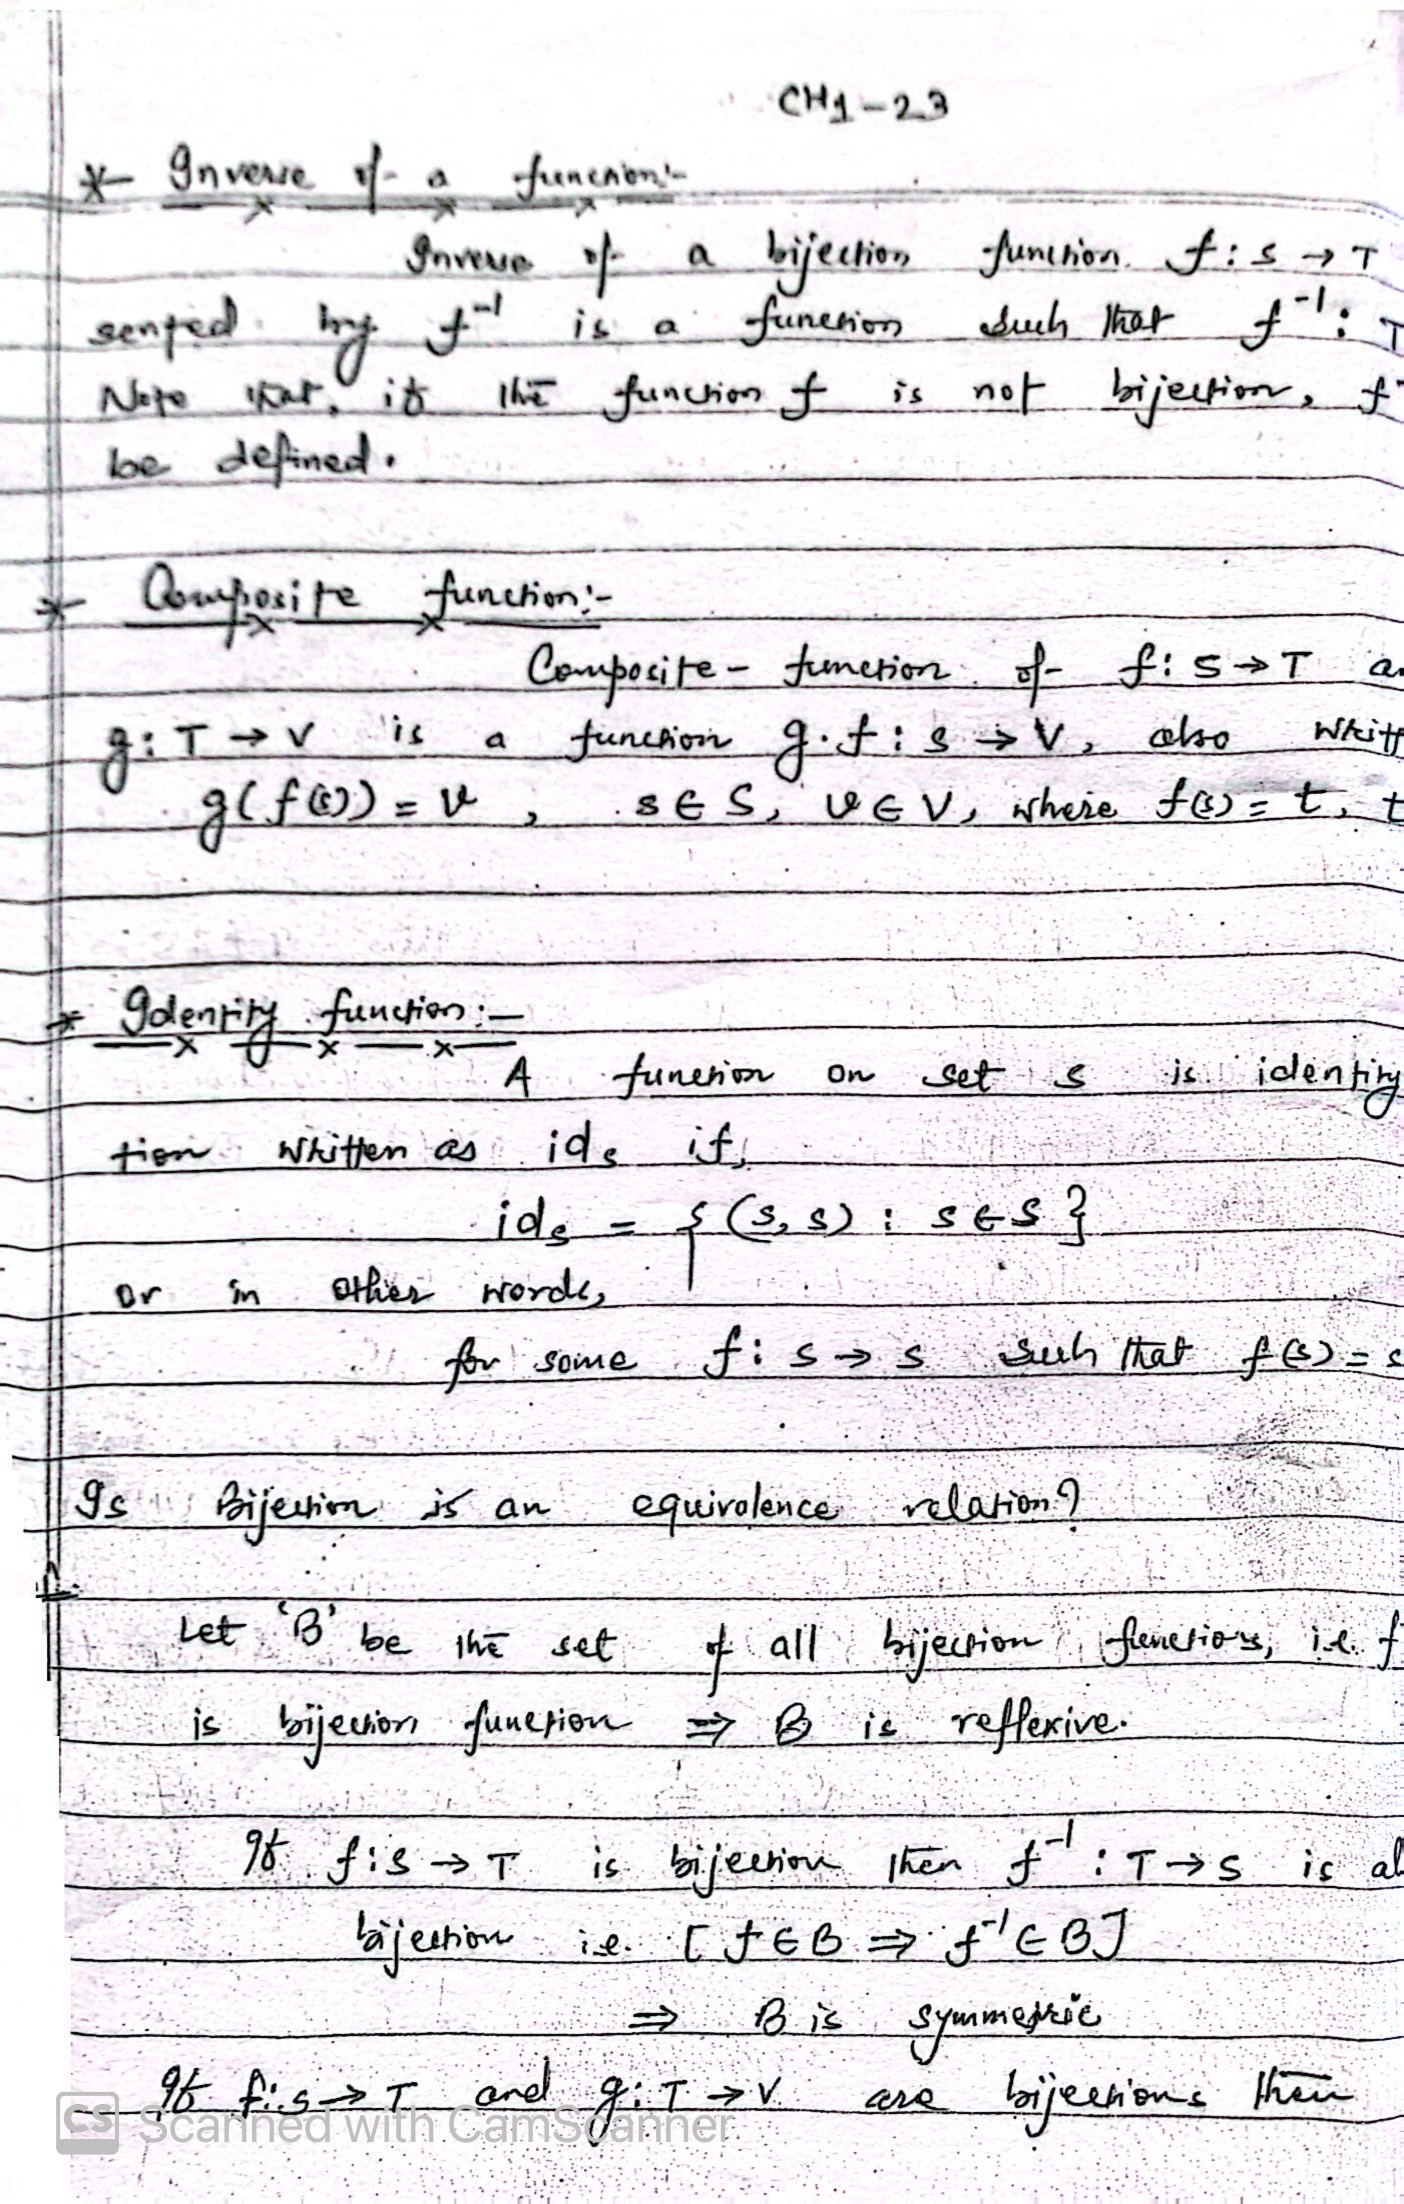 CH1-23
* Inverse of a function:-
Inverse of a bijection function f: S → T
sented by f⁻¹ is a function such that f⁻¹: T
Note that, if the function f is not bijection, f⁻
be defined.
* Composite function:-
Composite-function of f: S → T an
g: T → V is a function g.f: S → V, also writt
g(f(s)) = v, s ∈ S, v ∈ V, where f(s) = t, t
* Identity function:-
A function on set S is identity
tion written as id_S if,
id_S = {(s, s) : s ∈ S}
or in other words,
for some f: S → S such that f(s) = s
Is Bijection is an equivalence relation?
Let 'B' be the set of all bijection functions, i.e. f
is bijection function ⇒ B is reflexive.
If f: S → T is bijection then f⁻¹: T → S is al
bijection i.e. [f ∈ B ⇒ f⁻¹ ∈ B]
⇒ B is symmetric
If f: S → T and g: T → V are bijections then
CS Scanned with CamScanner